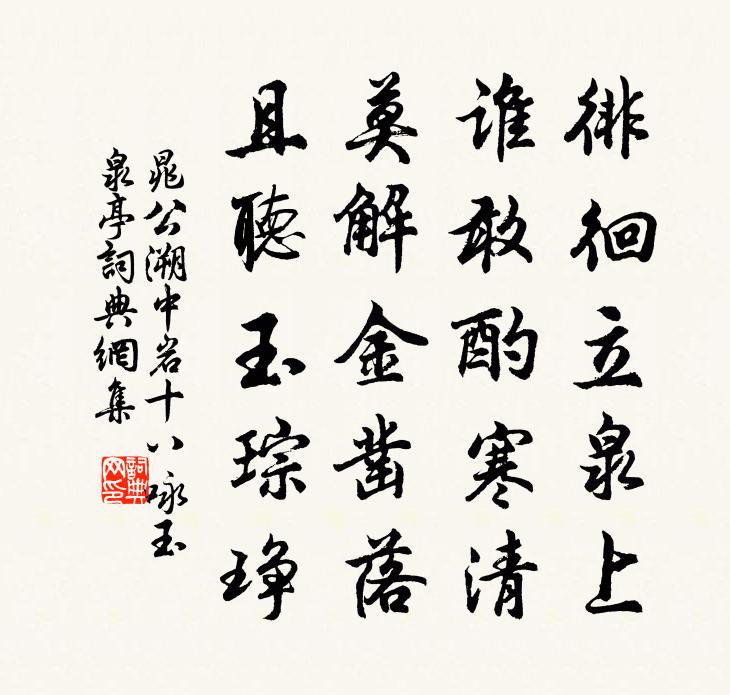 徘徊立泉上
谁敢酌寒清
莫解金凿落
且聽玉琮琤
晁公溯中岩十八咏玉
泉亭詞典網集
詞典网印